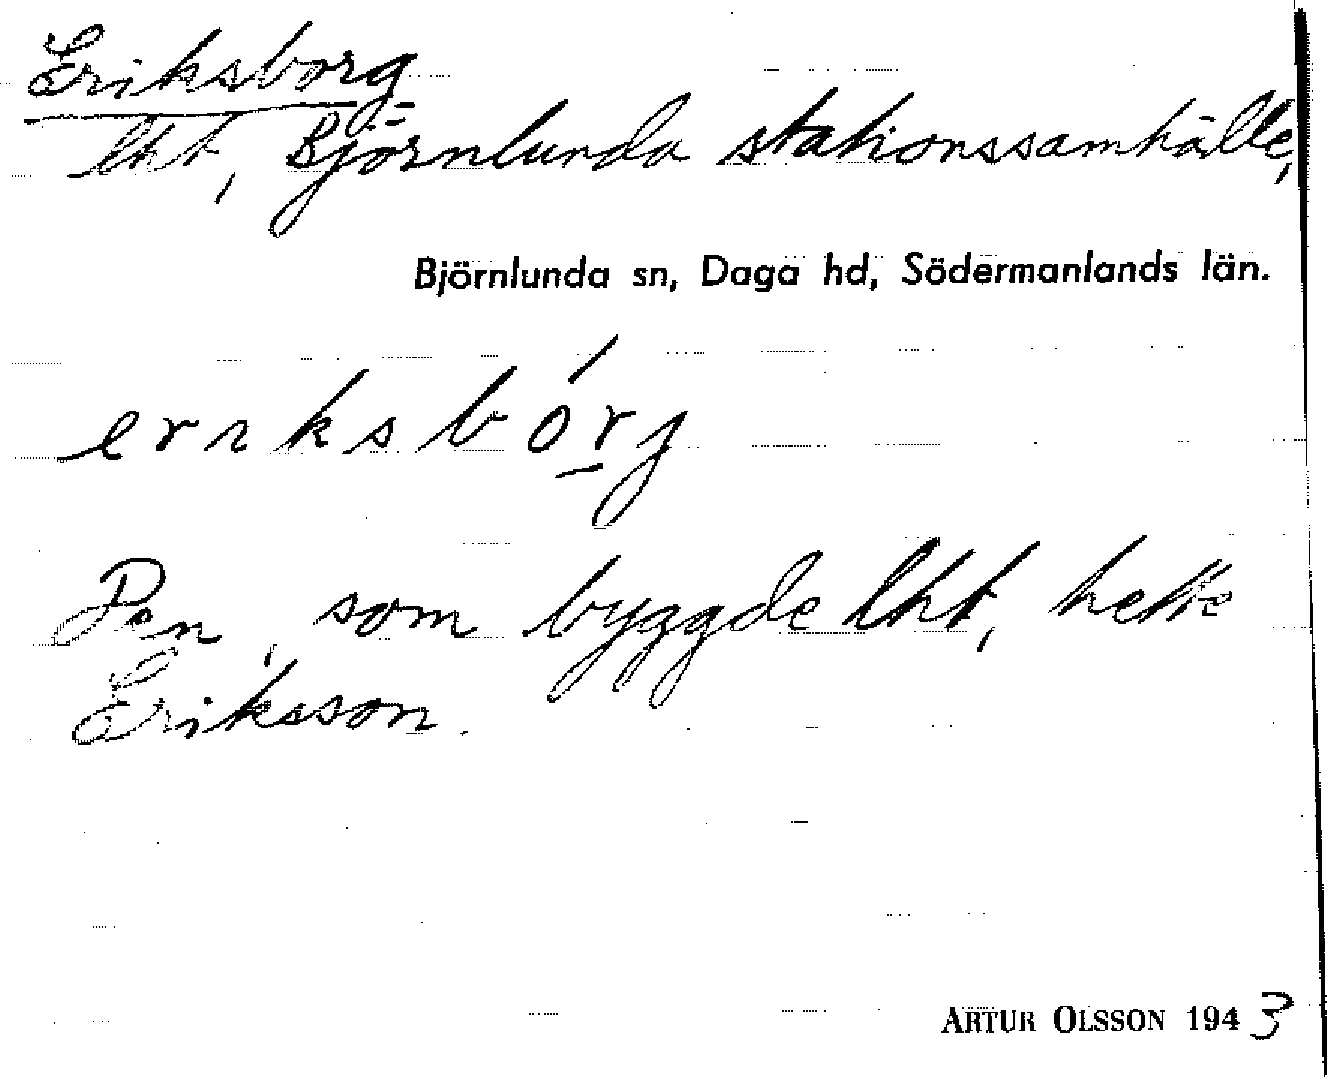 Eriksborg
lht, Björnlunda stationssamhälle,
Björnlunda sn, Daga hd, Södermanlands län.
erıksbórj
Den, som byggde lht, hette
Eriksson.
ARTUR OLSSON 1943